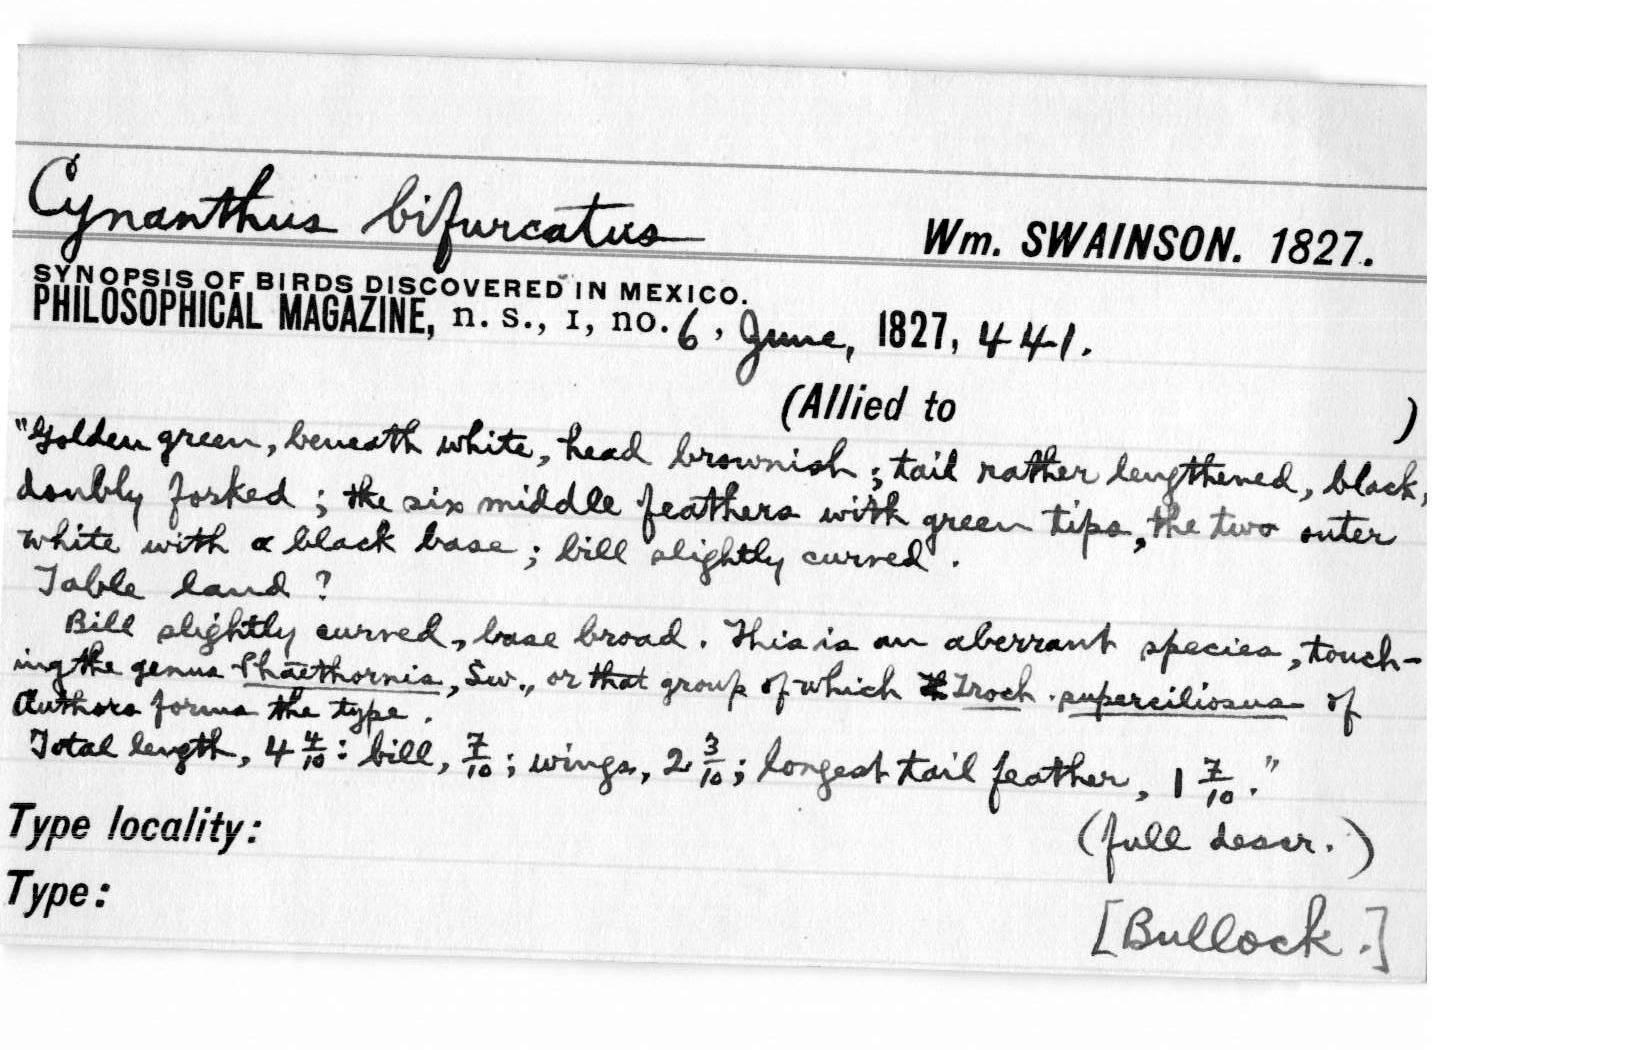 Cynanthus bifurcatus Wm. SWAINSON. 1827.
SYNOPSIS OF BIRDS DISCOVERED IN MEXICO.
PHILOSOPHICAL MAGAZINE, n. s., I, no. 6, June, 1827, 441.
(Allied to )
"Golden green, beneath white, head brownish; tail rather lengthened, black,
doubly forked; the six middle feathers with green tips, the two outer
white with a black base; bill slightly curved.
Table land?
Bill slightly curved, base broad. This is an aberrant species, touch-
ing the genus Phaethornis, Sw., or that group of which Troch. superciliosus of
Authors forms the type.
Total length, 4 4/10: bill, 7/10; wings, 2 3/10; longest tail feather, 1 7/10."
Type locality: (full descr.)
Type:
[Bullock.]